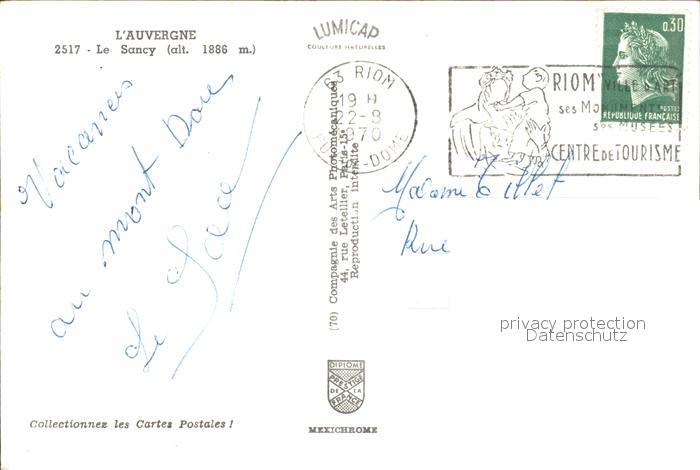 L'AUVERGNE
2517 - Le Sancy (alt. 1886 m.)
LUMICAP
COULEURS NATURELLES
63 RIOM
19 H
22-8
1970
PUY-DE-DOME
RIOM "VILLE D'ART"
SES MONUMENTS
SES MUSÉES
CENTRE DE TOURISME
0,30
POSTES
RÉPUBLIQUE FRANÇAISE
Vacances
au mont Dore
le
(70) Compagnie des Arts Photomécaniques
44, rue Letellier, Paris-15e
Reproduction interdite
Madame Tillet
Rue
privacy protection
Datenschutz
DIPLOME
PRESTIGE
DE LA
FRANCE
MEXICHROME
Collectionnez les Cartes Postales !